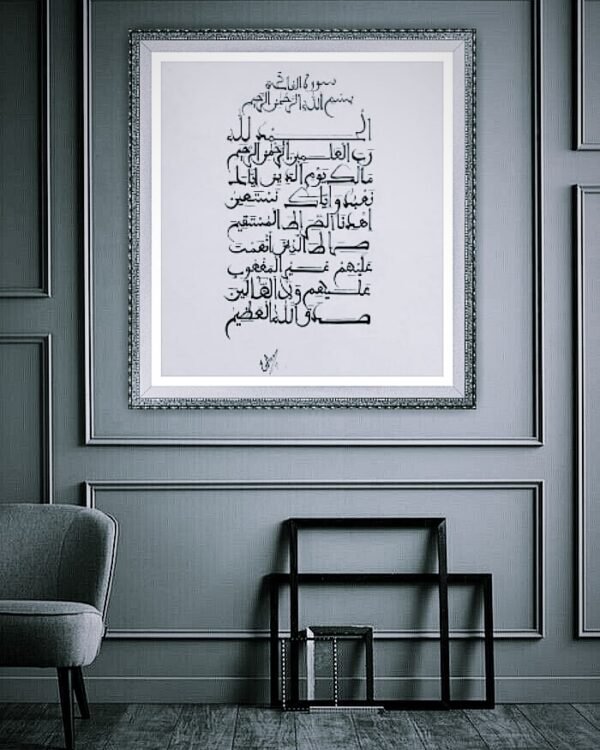 سورة الفاتحة
بسم الله الرحمن الرحيم
الحمد لله
رب العلمين الرحمن الرحيم
مالك يوم الدين إياك
نعبد وإياك نستعين
اهدنا الصراط المستقيم
صراط الذين أنعمت
عليهم غير المغضوب
عليهم ولا الضالين
صدق الله العظيم